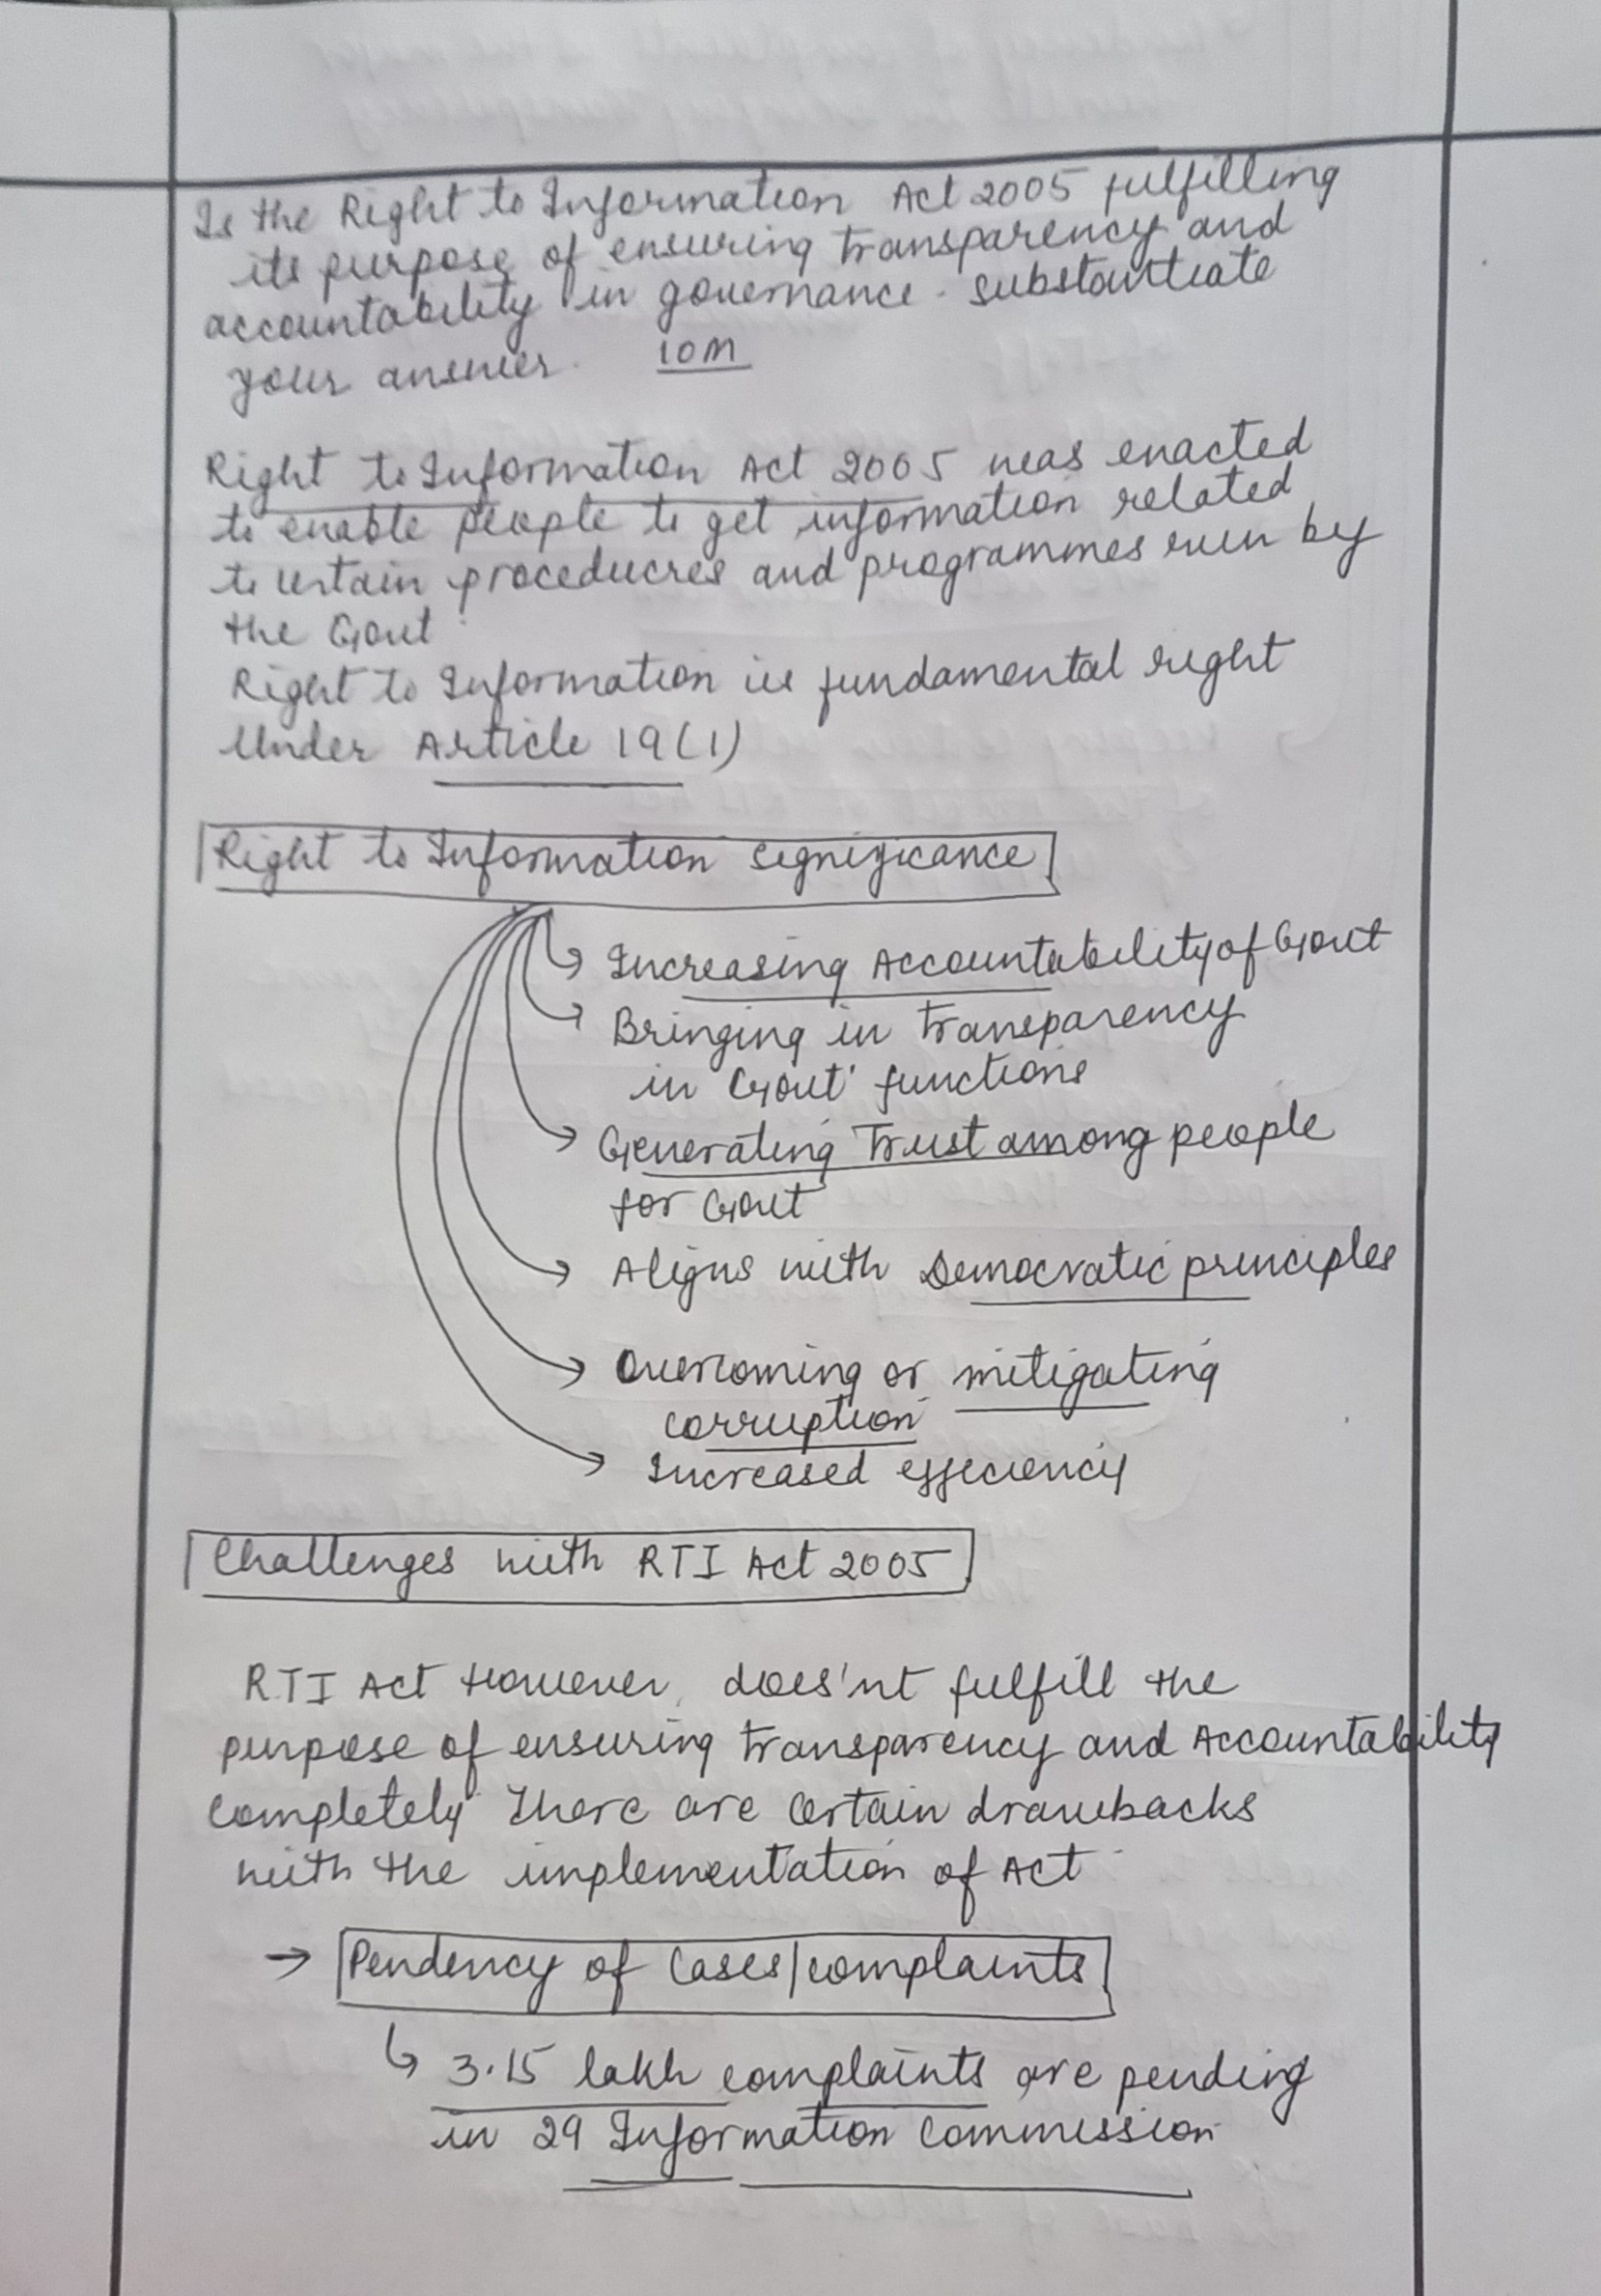 Is the Right to Information Act 2005 fulfilling
its purpose of ensuring transparency and
accountability in governance. substantiate
your answer. 10M
Right to Information Act 2005 was enacted
to enable people to get information related
to certain procedures and programmes run by
the Govt.
Right to Information is fundamental right
Under Article 19(1)
Right to Information significance
Increasing Accountability of Govt
Bringing in transparency
in Govt' functions
Generating Trust among people
for Govt
Aligns with Democratic principles
Overcoming or mitigating
corruption
Increased efficiency
Challenges with RTI Act 2005
RTI Act However, does'nt fulfill the
purpose of ensuring transparency and Accountability
completely There are certain drawbacks
with the implementation of Act
→ Pendency of Cases/complaints
↳ 3.15 lakh complaints are pending
in 29 Information Commission